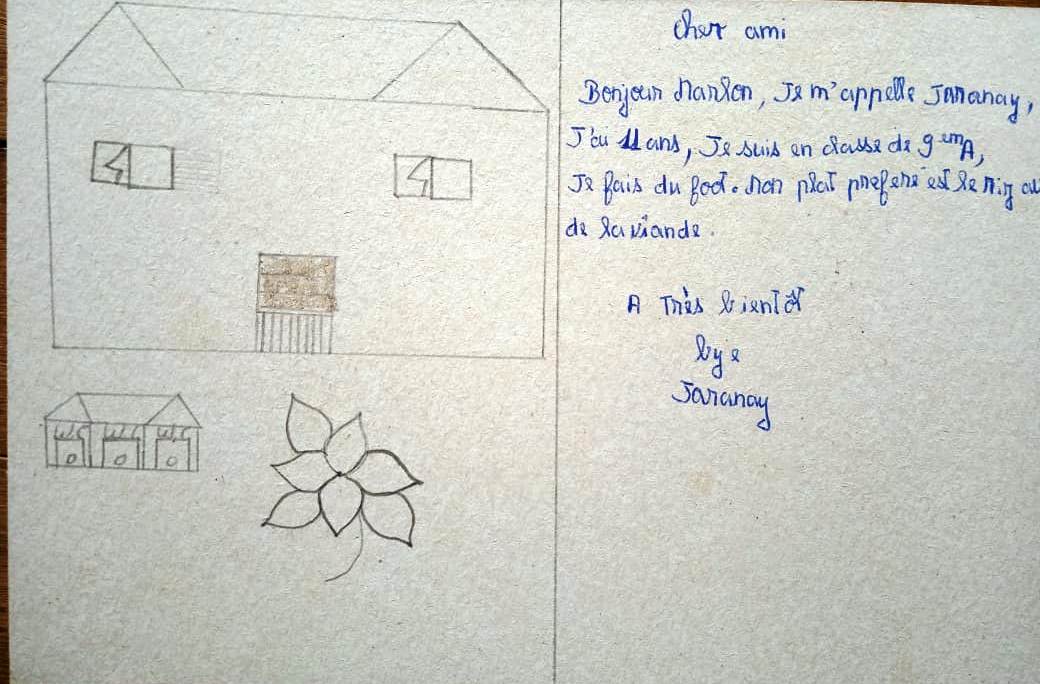 cher ami
Bonjour Marlon, Je m'appelle Jaranay,
J'ai 11 ans, Je suis en classe de 9emA,
Je fais du foot. Mon plat prefere est le riz au
de la viande.
A Très bientôt
bye
Jaranay
W.C W.C W.C